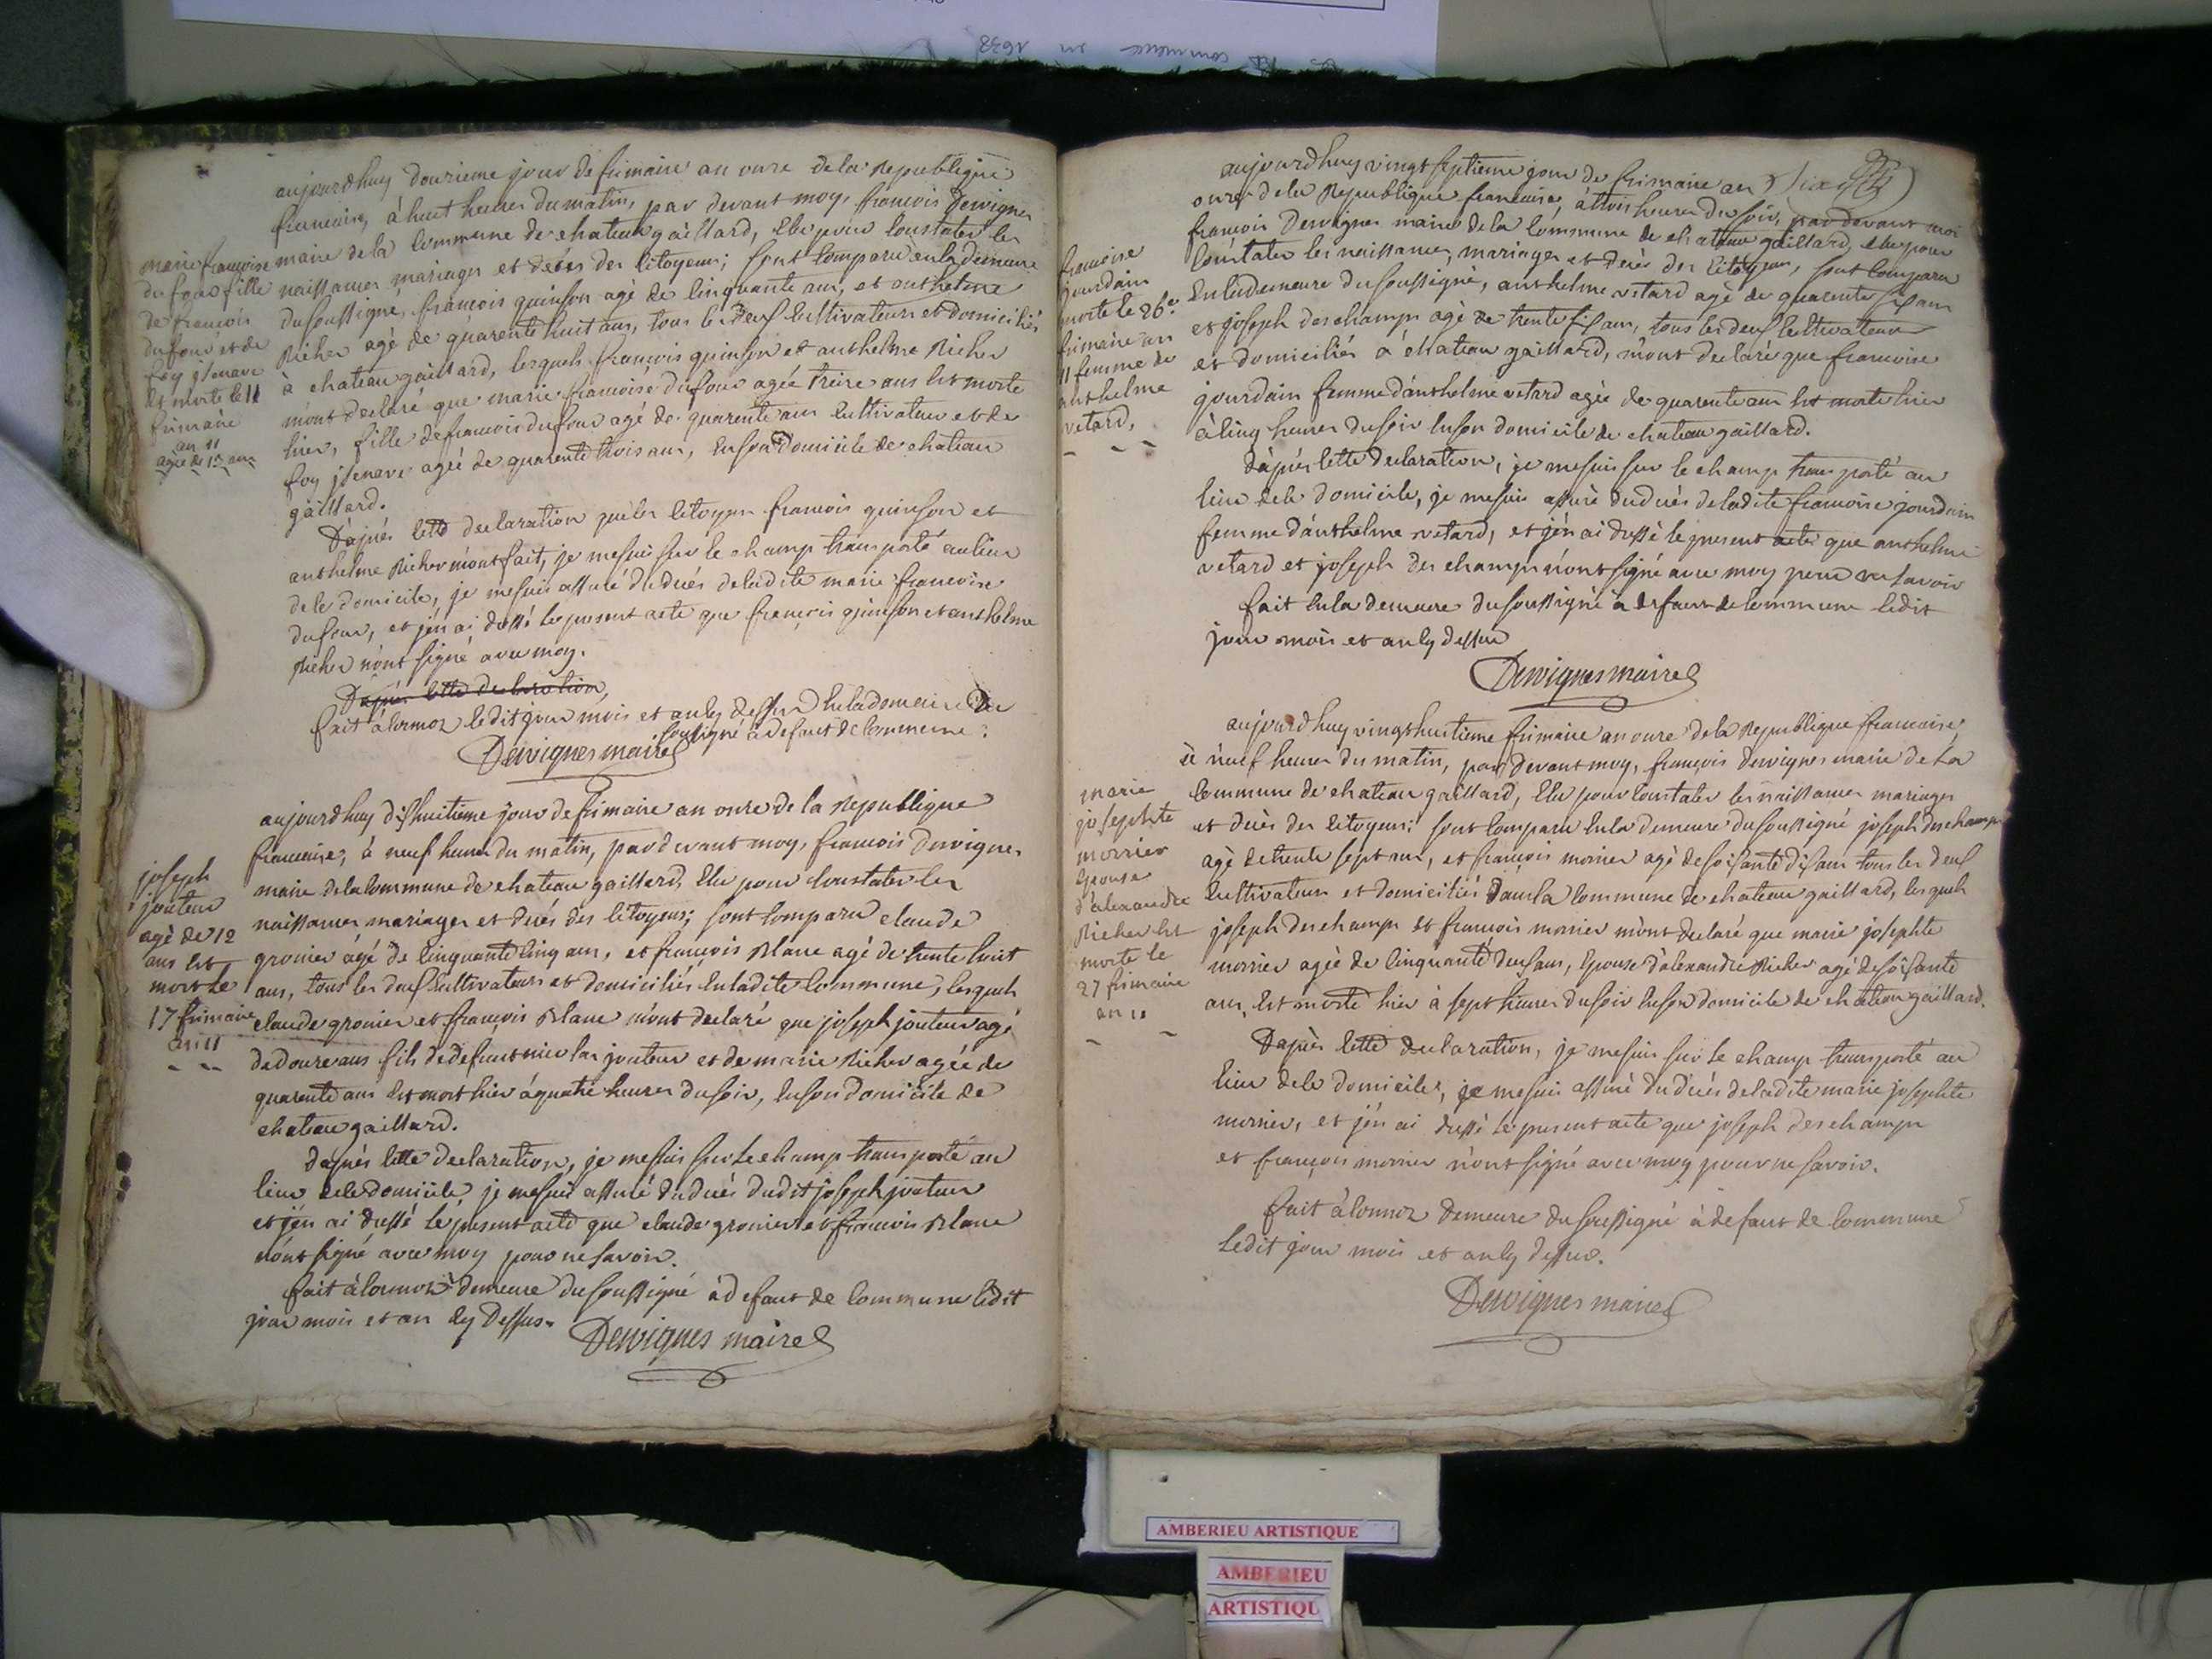 commence en 1638
aujourdhuy douzieme jour de frimaire an onze de la Republique
francaise, à huit heures du matin, par devant moy, francois Dervignes
maire de la Commune de chateau gaillard, Elu pour Constater les
naissances mariages et deces des Citoyens; sont Comparu en la demeure
du soussigné, francois quinson agé de Cinquante ans, et anthelme
Richer agé de quarente huit ans, tous les deux Cultivateurs et domiciliés
à chateau gaillard, lesquels francois quinson et anthelme Richer
m'ont declaré que marie francoise dufour agée treize ans est morte
hier, fille de francois dufour agé de quarente ans Cultivateur et de
foy agée de quarente trois ans, En son Domicile de chateau
gaillard.
D'après Cette declaration que les Citoyens francois quinson et
anthelme Richer m'ont fait, je me suis sur le champ transporté au lieu
de le domicile, je me suis assuré du decés de ladite marie francoise
dufour, et j'en ai dressé le present acte que francois quinson et anthelme
Richer n'ont signé avec moy.
D'après Cette declaration,
fait à Cormoz ledit jour mois et an Cy dessus En la demeure du
soussigné a defaut de Commune.
Dervignes maire
marie francoise
dufour fille
de francois
dufour et de
foy
Est morte le 11
frimaire
an 11
agée de 13 ans
aujourdhuy dixhuitieme jour de frimaire an onze de la Republique
francaise, à neuf heures du matin, pardevant moy, francois Dervignes
maire de la Commune de chateau gaillard, Elu pour Constater les
naissances mariages et decés des Citoyens; sont Comparu claude
gronier agé de Cinquante Cinq ans, et francois Blanc agé de trente huit
ans, tous les deux Cultivateurs et domiciliés En ladite Commune, lesquels
claude gronier et francois Blanc m'ont declaré que joseph jouteur agé
de douze ans fils de defunt nicolas jouteur et de marie Richer agée de
quarente ans Est mort hier à quatre heures du soir, En son domicile de
chateau gaillard.
D'après Cette declaration, je me suis sur le champ transporté au
lieu de le domicile je me suis assuré du decés dudit joseph jouteur
et j'en ai dressé le present acte que claude gronier et francois Blanc
n'ont signé avec moy pour ne savoir.
fait à Cormoz demeure du soussigné à defaut de Commune ledit
jour mois et an Cy Dessus.
Dervignes maire
joseph
jouteur
agé de 12
ans Est
mort Le
17 frimaire
an 11
aujourdhuy vingt septieme jour de frimaire an
onze de la Republique francaise, à trois heures du soir, par devant moi
francois Dervignes maire de la Commune de chateau gaillard, elu pour
Constater les naissances, mariages et decés des Citoyens, sont Comparu
En la demeure du soussigné, anthelme vetard agé de quarente six ans
et joseph deschamps agé de trente six ans, tous les deux Cultivateurs
et domiciliés à chateau gaillard, m'ont declaré que francoise
jourdain femme d'anthelme vetard agée de quarente ans Est morte hier
à Cinq heures du soir En son domicile de chateau gaillard.
D'après Cette declaration, je me suis sur le champ transporté au
lieu de le domicile, je me suis assuré du decés de ladite francoise jourdain
femme d'anthelme vetard, et j'en ai dressé le present acte que anthelme
vetard et joseph deschamps n'ont signé avec moy pour ne savoir
fait En la demeure du soussigné à defaut de Commune ledit
jour mois et an Cy dessus
Dervignes maire
francoise
jourdain
morte le 26e
frimaire an
11 femme de
anthelme
vetard,
aujourdhuy vingt huitieme frimaire an onze de la Republique francaise,
à neuf heures du matin, par devant moy, françois dervignes maire de La
Commune de chateau gaillard, Elu pour Constater les naissances mariages
et decès des Citoyens; sont Comparu En la demeure du soussigné joseph deschamps
agé de trente sept ans, et françois morrier agé de soixante dix ans tous les deux
Cultivateurs et domiciliés dans la Commune de chateau gaillard, lesquels
joseph deschamps et francois morrier m'ont declaré que marie josephte
morrier agée de Cinquante deux ans, Epouse d'alexandre Richer agé de soixante
ans, Est morte hier à sept heures du soir En son domicile de chateau gaillard.
D'après Cette declaration, je me suis sur Le champ transporté au
lieu de le domicile, je me suis assuré du decés de ladite marie josephte
morrier, et j'en ai dressé Le present acte que joseph deschamps
et françois morrier n'ont signé avec moy pour ne savoir.
fait à Cormoz demeure du soussigné à defaut de Commune
Ledit jour mois et an Cy dessus.
Dervignes maire
marie
josephte
morrier
Epouse
d'alexandre
Richer Est
morte le
27 frimaire
an 11
AMBERIEU ARTISTIQUE
AMBERIEU
ARTISTIQU